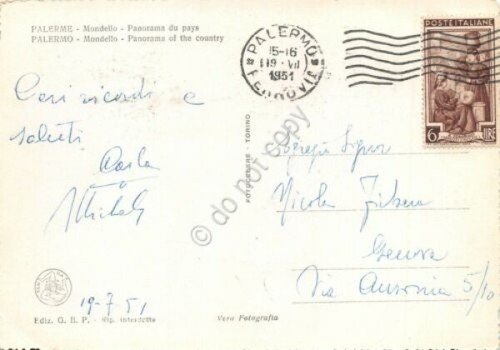 PALERME - Mondello - Panorama du pays
PALERMO - Mondello - Panorama of the country
PALERMO
15-16
19·VII
1951
FERROVIA
POSTE ITALIANE
6 LIRE
Cari ricordi e
saluti
Carla
Michele
19-7-51
Ediz. G. B. P. - Rip. interdetta
Vera Fotografia
FOTOCELERE - TORINO
do not copy
Egregio Signor
Nicola
Genova
Via Ausonia 5/10